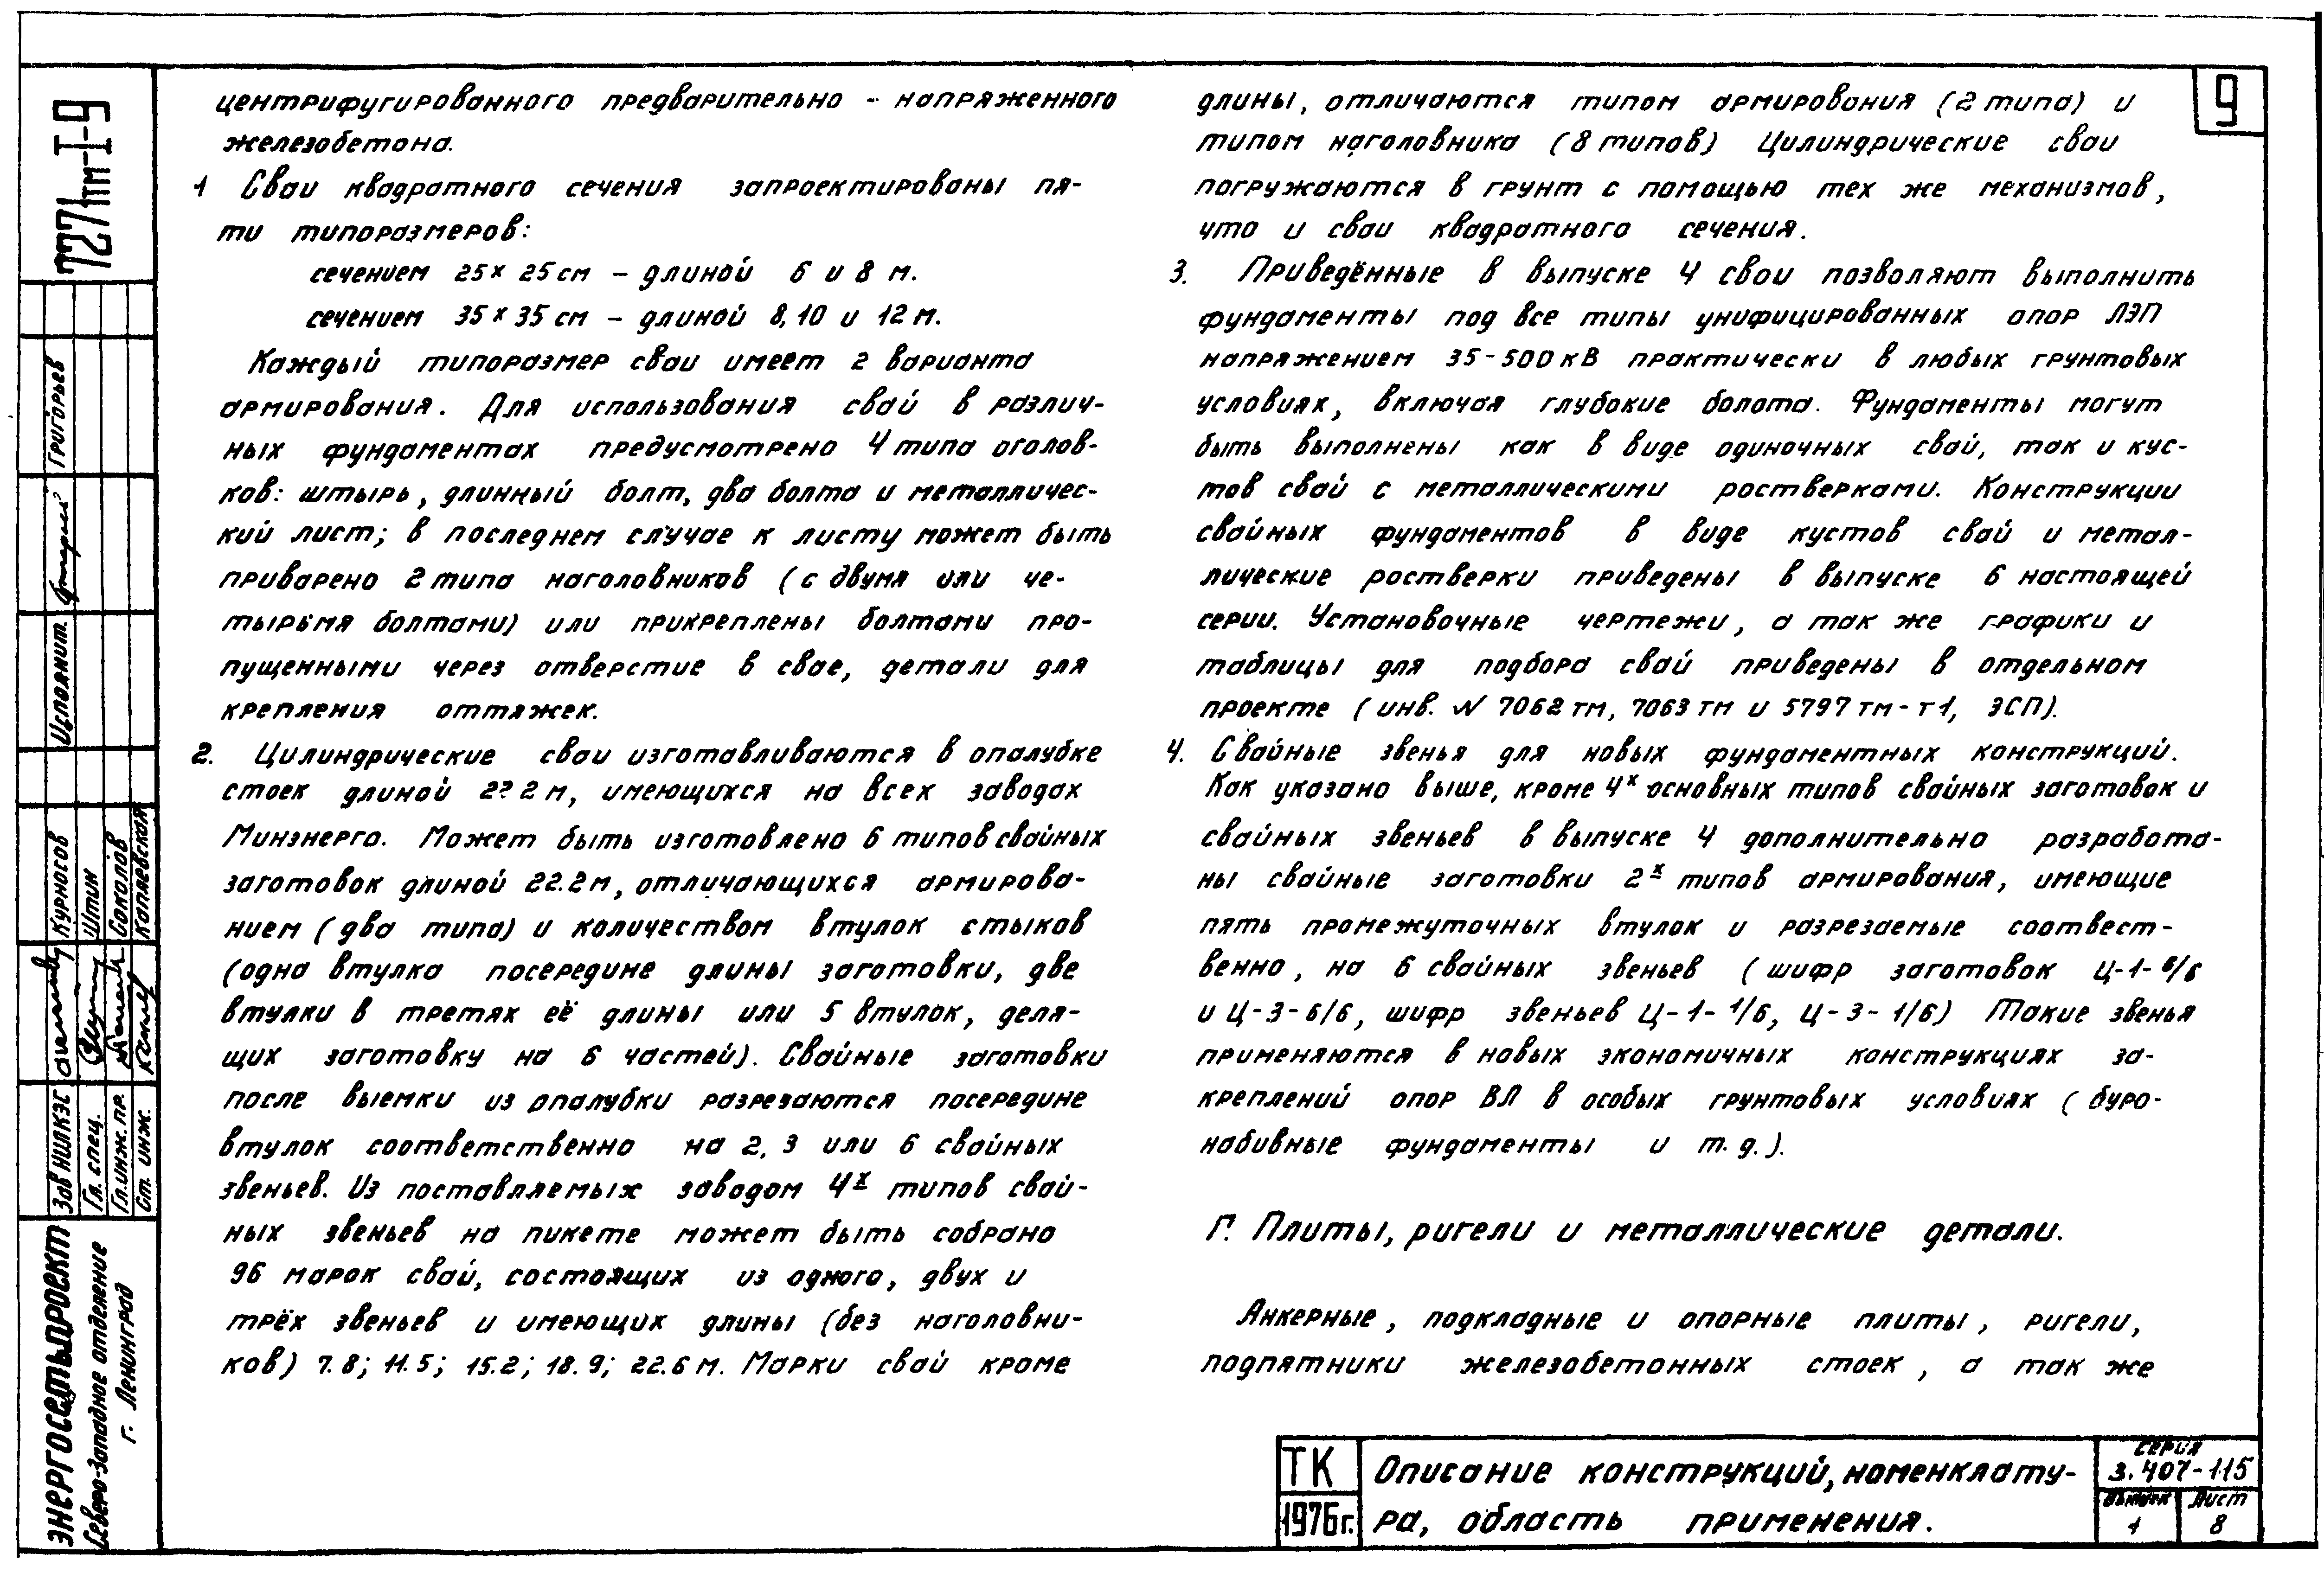 центрифугированного предварительно - напряженного
железобетона.
1 Сваи квадратного сечения запроектированы пя-
ти типоразмеров:
сечением 25x25 см – длиной 6 и 8 м.
сечением 35x35 см – длиной 8,10 и 12 м.
Каждый типоразмер сваи имеет 2 варианта
армирования. Для использования свай в различ-
ных фундаментах предусмотрено 4 типа оголов-
ков: штырь, длинный болт, два болта и металличес-
кий лист; в последнем случае к листу может быть
приварено 2 типа наголовников (с двумя или че-
тырьмя болтами) или прикреплены болтами про-
пущенными через отверстие в свае, детали для
крепления оттяжек.
2. Цилиндрические сваи изготавливаются в опалубке
стоек длиной 22.2 м, имеющихся на всех заводах
Минэнерго. Может быть изготовлено 6 типов свайных
заготовок длиной 22.2 м, отличающихся армирова-
нием (два типа) и количеством втулок стыков
(одна втулка посередине длины заготовки, две
втулки в третях её длины или 5 втулок, деля-
щих заготовку на 6 частей). Свайные заготовки
после выемки из опалубки разрезаются посередине
втулок соответственно на 2, 3 или 6 свайных
звеньев. Из поставляемых заводом 4х типов свай-
ных звеньев на пикете может быть собрано
96 марок свай, состоящих из одного, двух и
трёх звеньев и имеющих длины (без наголовни-
ков) 7.8; 11.5; 15.2; 18.9; 22.6 м. Марки свай кроме
длины, отличаются типом армирования (2 типа) и
типом наголовника (8 типов) Цилиндрические сваи
погружаются в грунт с помощью тех же механизмов,
что и сваи квадратного сечения.
3. Приведённые в выпуске 4 сваи позволяют выполнить
фундаменты под все типы унифицированных опор ЛЭП
напряжением 35-500 кВ практически в любых грунтовых
условиях, включая глубокие болота. Фундаменты могут
быть выполнены как в виде одиночных свай, так и кус-
тов свай с металлическими ростверками. Конструкции
свайных фундаментов в виде кустов свай и метал-
лические ростверки приведены в выпуске 6 настоящей
серии. Установочные чертежи, а так же графики и
таблицы для подбора свай приведены в отдельном
проекте (инв. N 7062 тм, 7063 тм и 5797 тм-т1, ЭСП).
4. Свайные звенья для новых фундаментных конструкций.
Как указано выше, кроме 4х основных типов свайных заготовок и
свайных звеньев в выпуске 4 дополнительно разработа-
ны свайные заготовки 2х типов армирования, имеющие
пять промежуточных втулок и разрезаемые соотвест-
венно, на 6 свайных звеньев (шифр заготовок Ц-1-6/6
и Ц-3-6/6, шифр звеньев Ц-1-1/6, Ц-3-1/6) Такие звенья
применяются в новых экономичных конструкциях за-
креплений опор ВЛ в особых грунтовых условиях (буро-
набивные фундаменты и т.д.).
Г. Плиты, ригели и металлические детали.
Анкерные, подкладные и опорные плиты, ригели,
подпятники железобетонных стоек, а так же
9
7271тм-I-9
Григорьев
Исполнит.
Курносов
Штин
Соколов
Каплевская
Зав НИЛКЭС
Гл. спец.
Гл. инж. пр.
Ст. инж.
ЭНЕРГОСЕТЬПРОЕКТ
Северо-Западное отделение
г. Ленинград
ТК
1976г.
Описание конструкций, номенклату-
ра, область применения.
серия
3.407-115
Выпуск
1
Лист
8